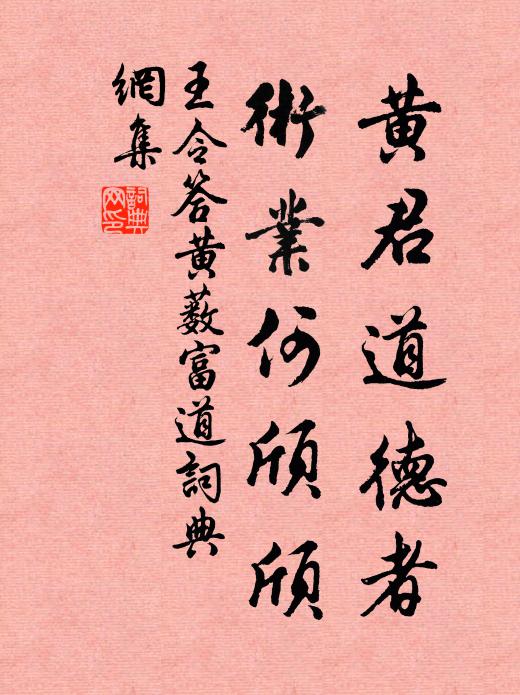 黃君道德者
術業何頎頎
王令答黃藪富道詞典
網集
詞典
网印